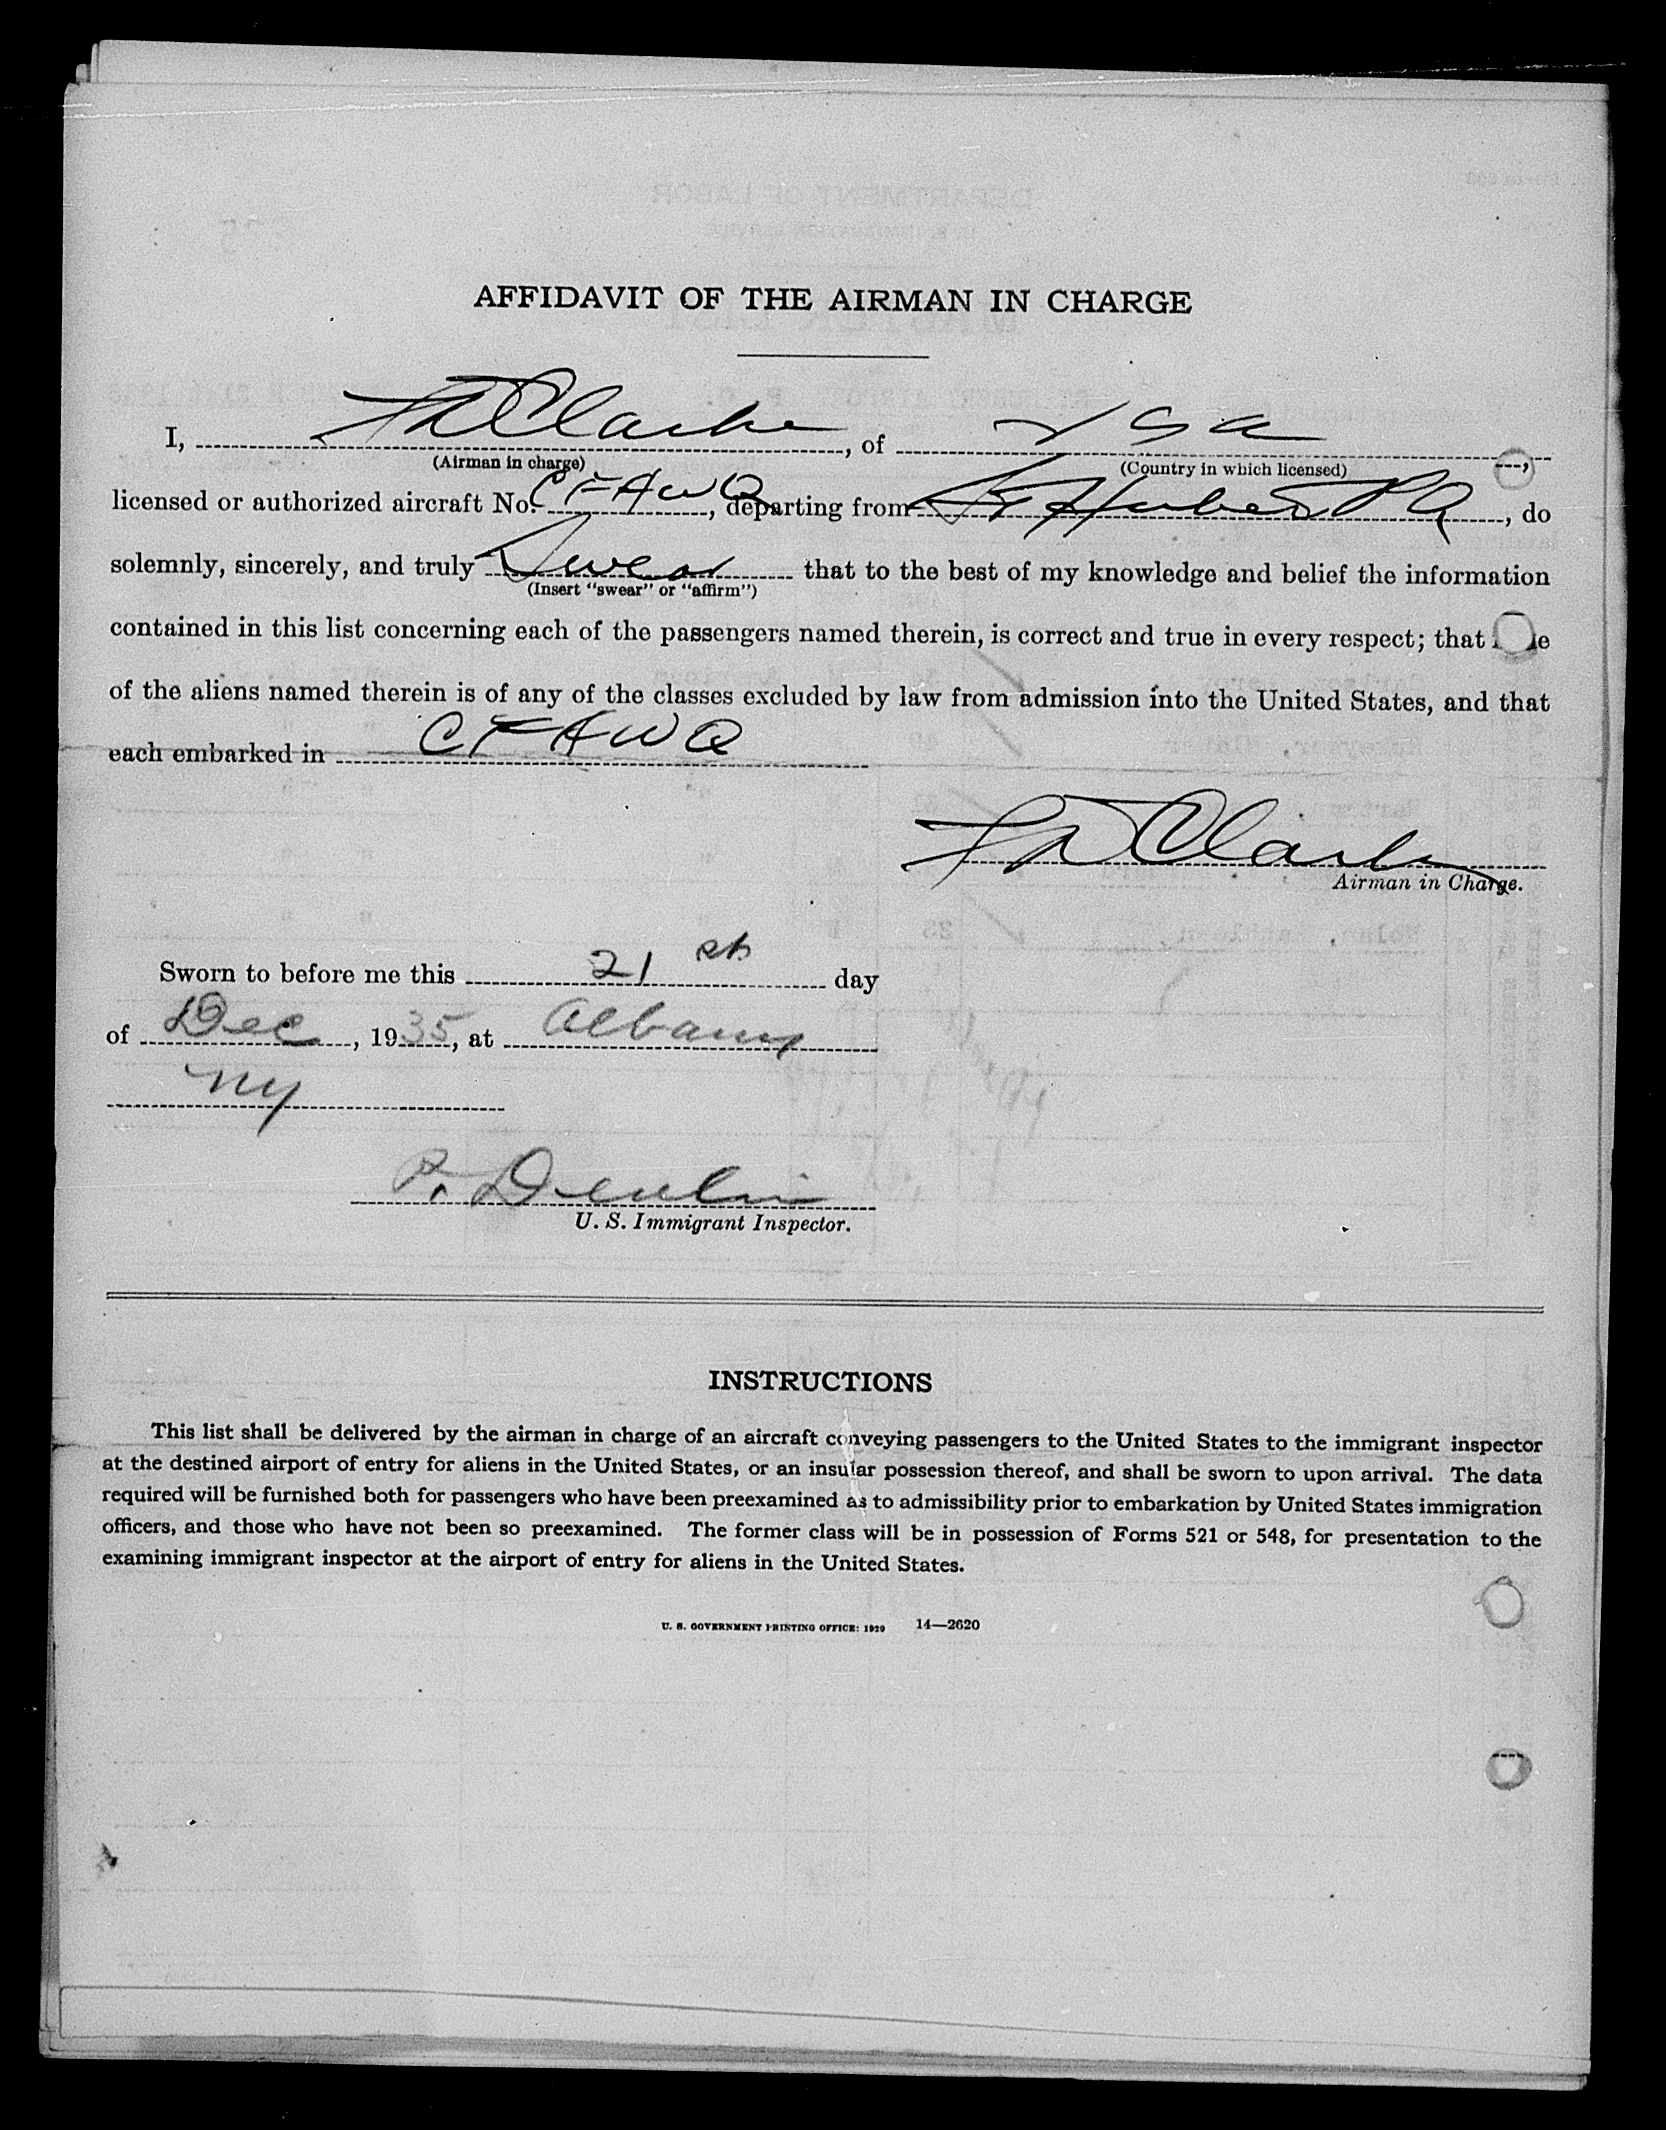 AFFIDAVIT OF THE AIRMAN IN CHARGE
I, Clarke, of USA
(Airman in charge) (Country in which licensed)
licensed or authorized aircraft No. CFAWQ, departing from St Hubert P Q, do
solemnly, sincerely, and truly Swear that to the best of my knowledge and belief the information
(Insert "swear" or "affirm")
contained in this list concerning each of the passengers named therein, is correct and true in every respect; that
of the aliens named therein is of any of the classes excluded by law from admission into the United States, and that
each embarked in CFAWQ
Clarke
Airman in Charge.
Sworn to before me this 21 st day
of Dec, 1935, at Albany
NY
P. Devlin
U. S. Immigrant Inspector.
INSTRUCTIONS
This list shall be delivered by the airman in charge of an aircraft conveying passengers to the United States to the immigrant inspector
at the destined airport of entry for aliens in the United States, or an insular possession thereof, and shall be sworn to upon arrival. The data
required will be furnished both for passengers who have been preexamined as to admissibility prior to embarkation by United States immigration
officers, and those who have not been so preexamined. The former class will be in possession of Forms 521 or 548, for presentation to the
examining immigrant inspector at the airport of entry for aliens in the United States.
U. S. GOVERNMENT PRINTING OFFICE: 1929 14—2620